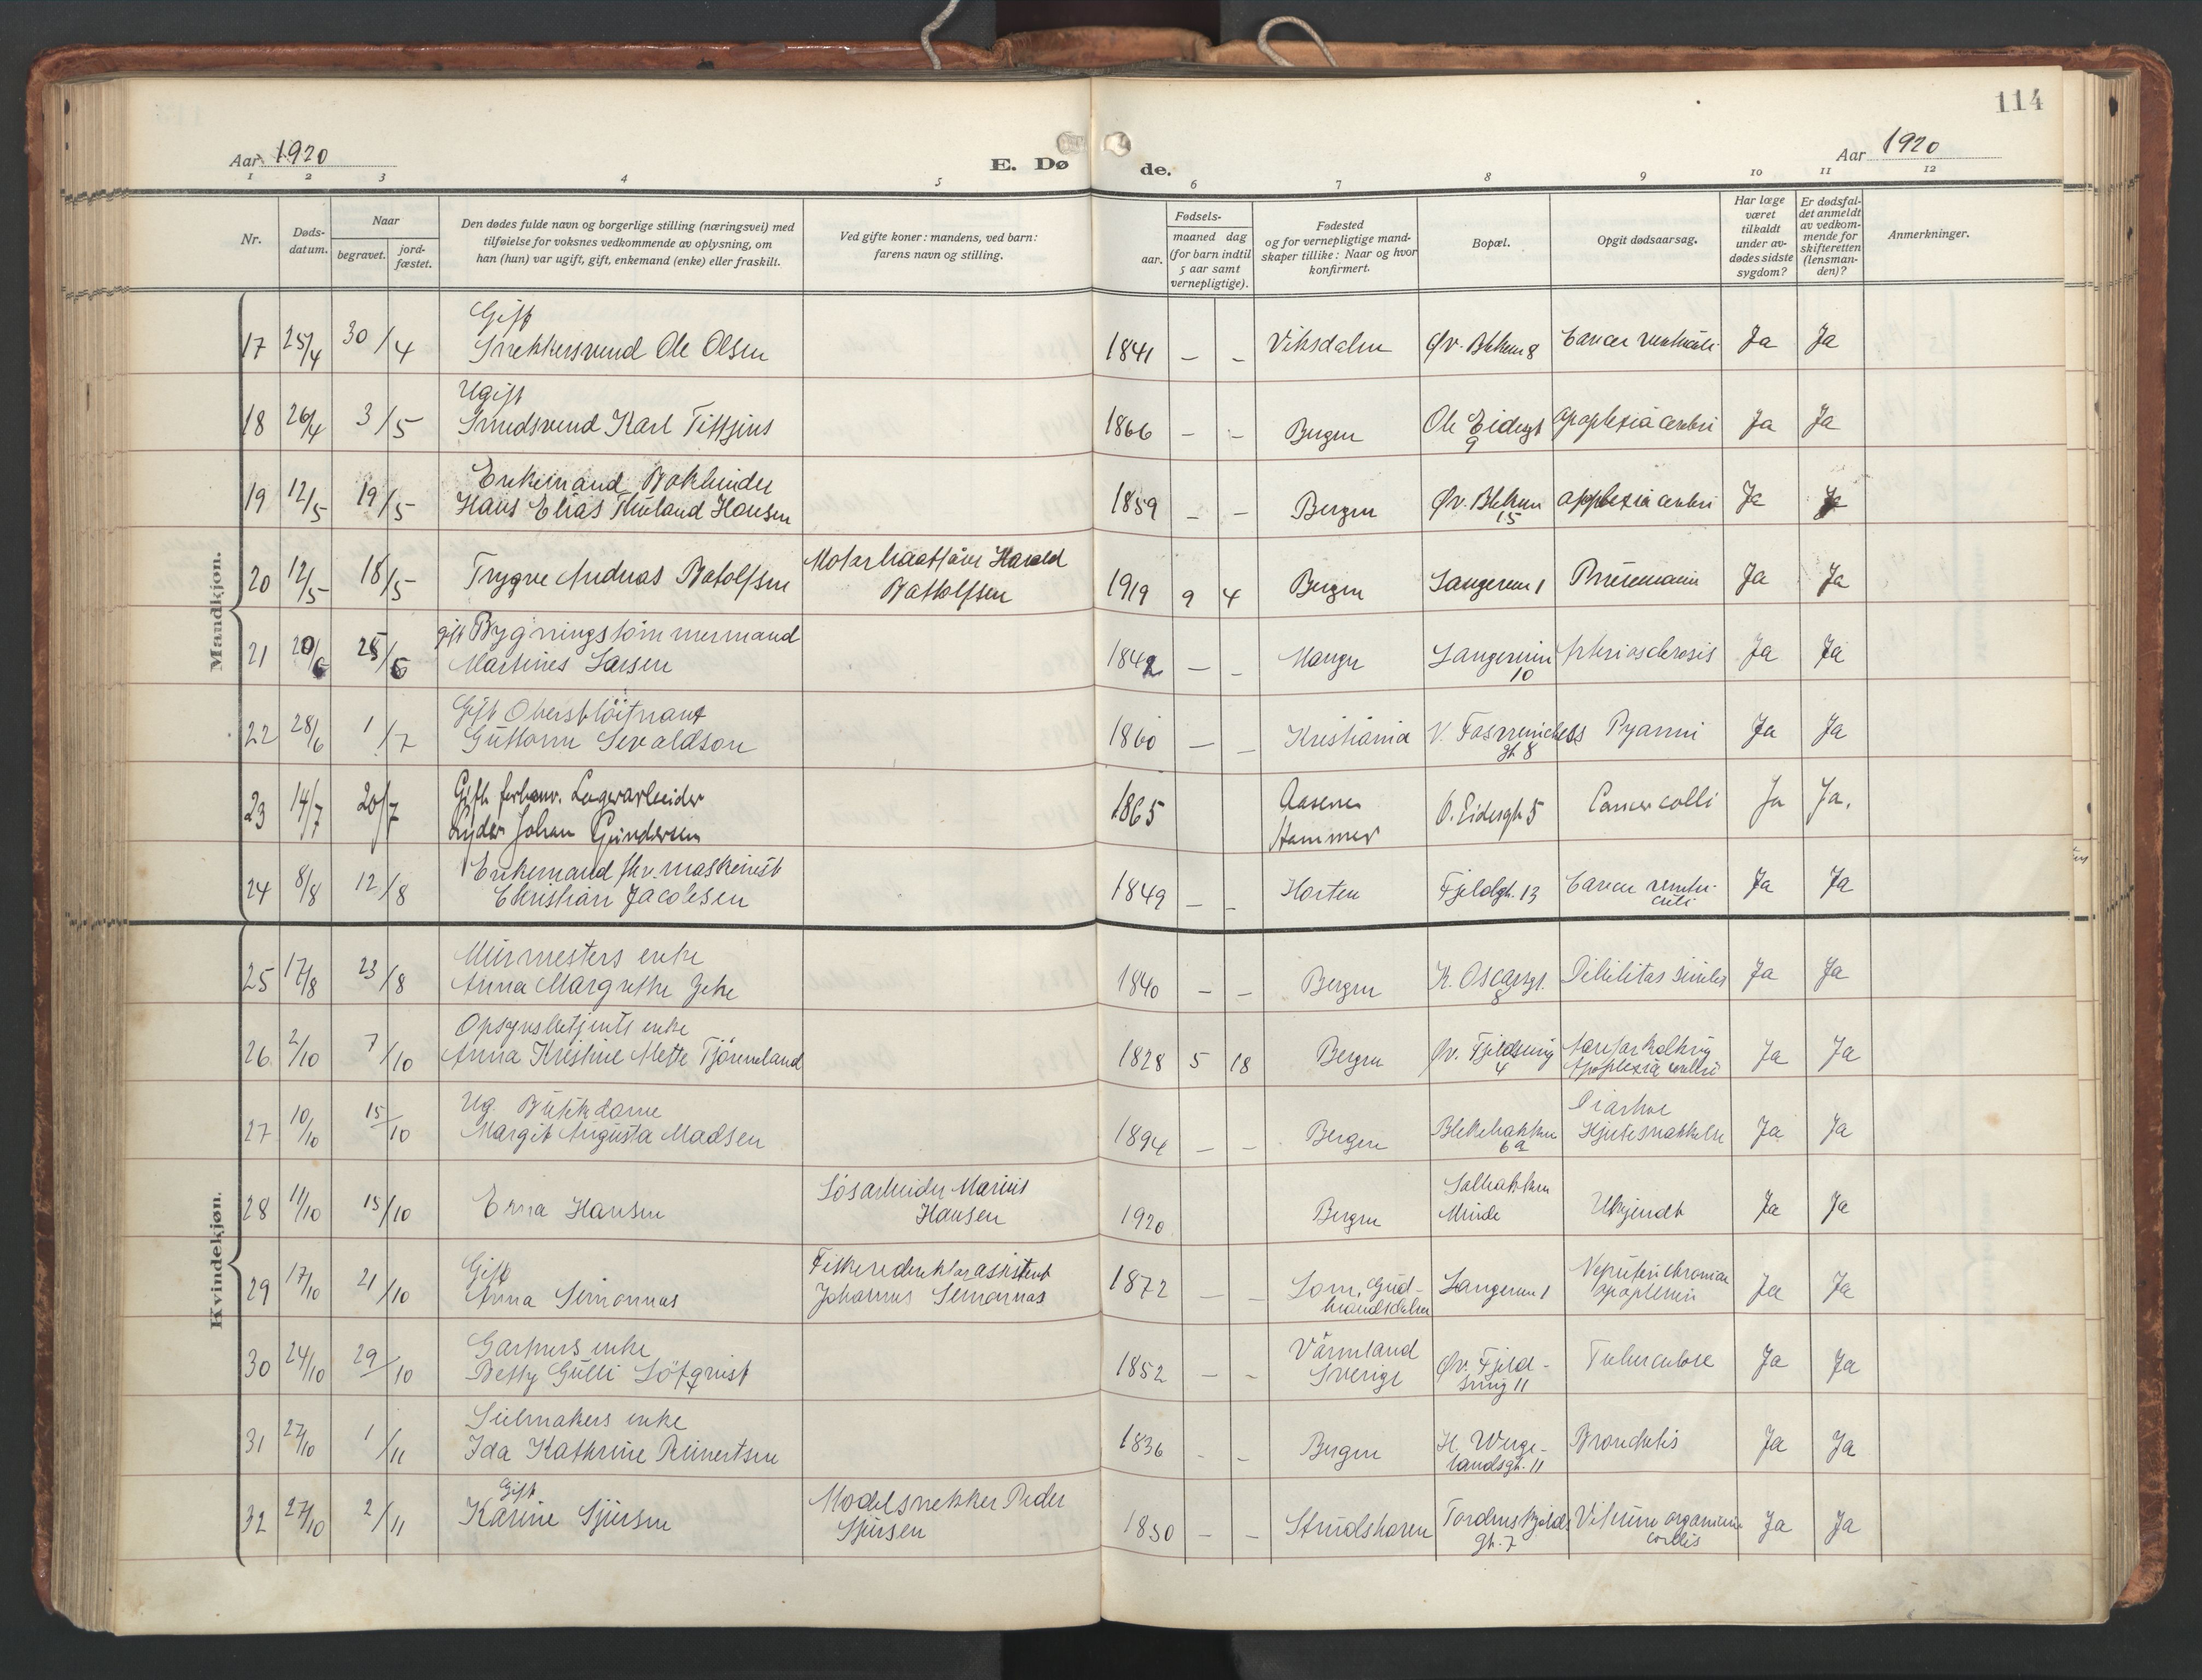 114
Aar 1920
E. Døde.
Aar 1920
1 2 3 4 5 6 7 8 9 10 11 12
Nr.
Døds-
datum.
Naar
begravet.
jord-
fæstet.
Den dødes fulde navn og borgerlige stilling (næringsvei) med
tilføielse for voksnes vedkommende av oplysning, om
han (hun) var ugift, gift, enkemand (enke) eller fraskilt.
Ved gifte koner: mandens, ved barn:
farens navn og stilling.
Fødsels-
aar.
maaned dag
(for barn indtil
5 aar samt
vernepligtige).
Fødested
og for vernepligtige mand-
skaper tillike: Naar og hvor
konfirmert.
Bopæl.
Opgit dødsaarsag.
Har læge
været
tilkaldt
under av-
dødes sidste
sygdom?
Er dødsfal-
det anmeldt
av vedkom-
mende for
skifteretten
(lensman-
den)?
Anmerkninger.
Mandkjøn.
Gift
17 25/4 30/4 Snekkersvend Ole Olsen 1841 – – Viksdalen Øv. Blekev 8 Cancer ventriculi Ja Ja
Ugift
18 26/4 3/5 Smedsvend Karl 1866 – – Bergen Ole Eidesgt 9 apoplexia cerebri Ja Ja
Enkemand Bokbinder
19 12/5 19/5 Hans Elias Hansen 1859 – – Bergen Øv. Blekev 15 apoplexia cerebri Ja Ja
20 12/5 18/5 Trygve Andreas Batolfsen Harald Batolfsen 1919 9 4 Bergen Langeveien 1 Ja Ja
gift Bygningstømmermand
21 20/6 25/6 Martines Larsen 1842 – – Manger Langeveien 10 Arteriosclerosis Ja Ja
Gift Oberstløitnant
22 28/6 1/7 Guttorm Sevaldson 1860 – – Kristiania V. gt. 8 Pyæmi Ja Ja
Gift forhenv. Lagerarbeider
23 14/7 20/7 Lyder Johan Gundersen 1865 Aasene Hammer O. Eidesgt 5 Cancer colli Ja Ja.
Enkemand fhv. maskinist
24 8/8 12/8 Christian Jacobsen 1849 – – Horten Fjeldgt. 13 Cancer ventriculi Ja Ja
Kvindekjøn.
Murmesters enke
25 17/8 23/8 Anna Margrethe 1840 – – Bergen K. Oscarsgt. 8 Debilitas senilis Ja Ja
Opsynsbetjents enke
26 2/10 7/10 Anna Kristine Mette Tjønneland 1828 5 18 Bergen Øv. Fjeldsmug 4 Aareforkalkning Apoplexia cerebri Ja Ja
Ug. Butikdame
27 10/10 15/10 Margit Augusta Madsen 1894 – – Bergen Blekebakken 6a Diarhoe Hjertesvækkelse Ja Ja
28 11/10 15/10 Erna Hansen Løsarbeider Marius Hansen 1920 Bergen Solbakken Minde Ukjendt Ja Ja
Gift
29 17/10 21/10 Anna Semonnæs Fiskeridirektørassistent Johannes Semonnæs 1872 – – Lom, Gudbrandsdalen Langeveien 1 Ja Ja
Gartners enke
30 24/10 29/10 Betty Gulli Löfqvist 1852 – – Värmland Sverige Øv. Fjeldsmug 11 Tuberculose Ja Ja
Seilmakers enke
31 27/10 1/11 Ida Kathrine Reinertsen 1836 – – Bergen H. Wergelandsgt. 11 Bronchitis Ja Ja
Gift
32 27/10 2/11 Karine Sjursen Modelsnekker Peder Sjursen 1850 – – Strudshavn Tordenskjolds gt. 7 Vitium organicum cordis Ja Ja